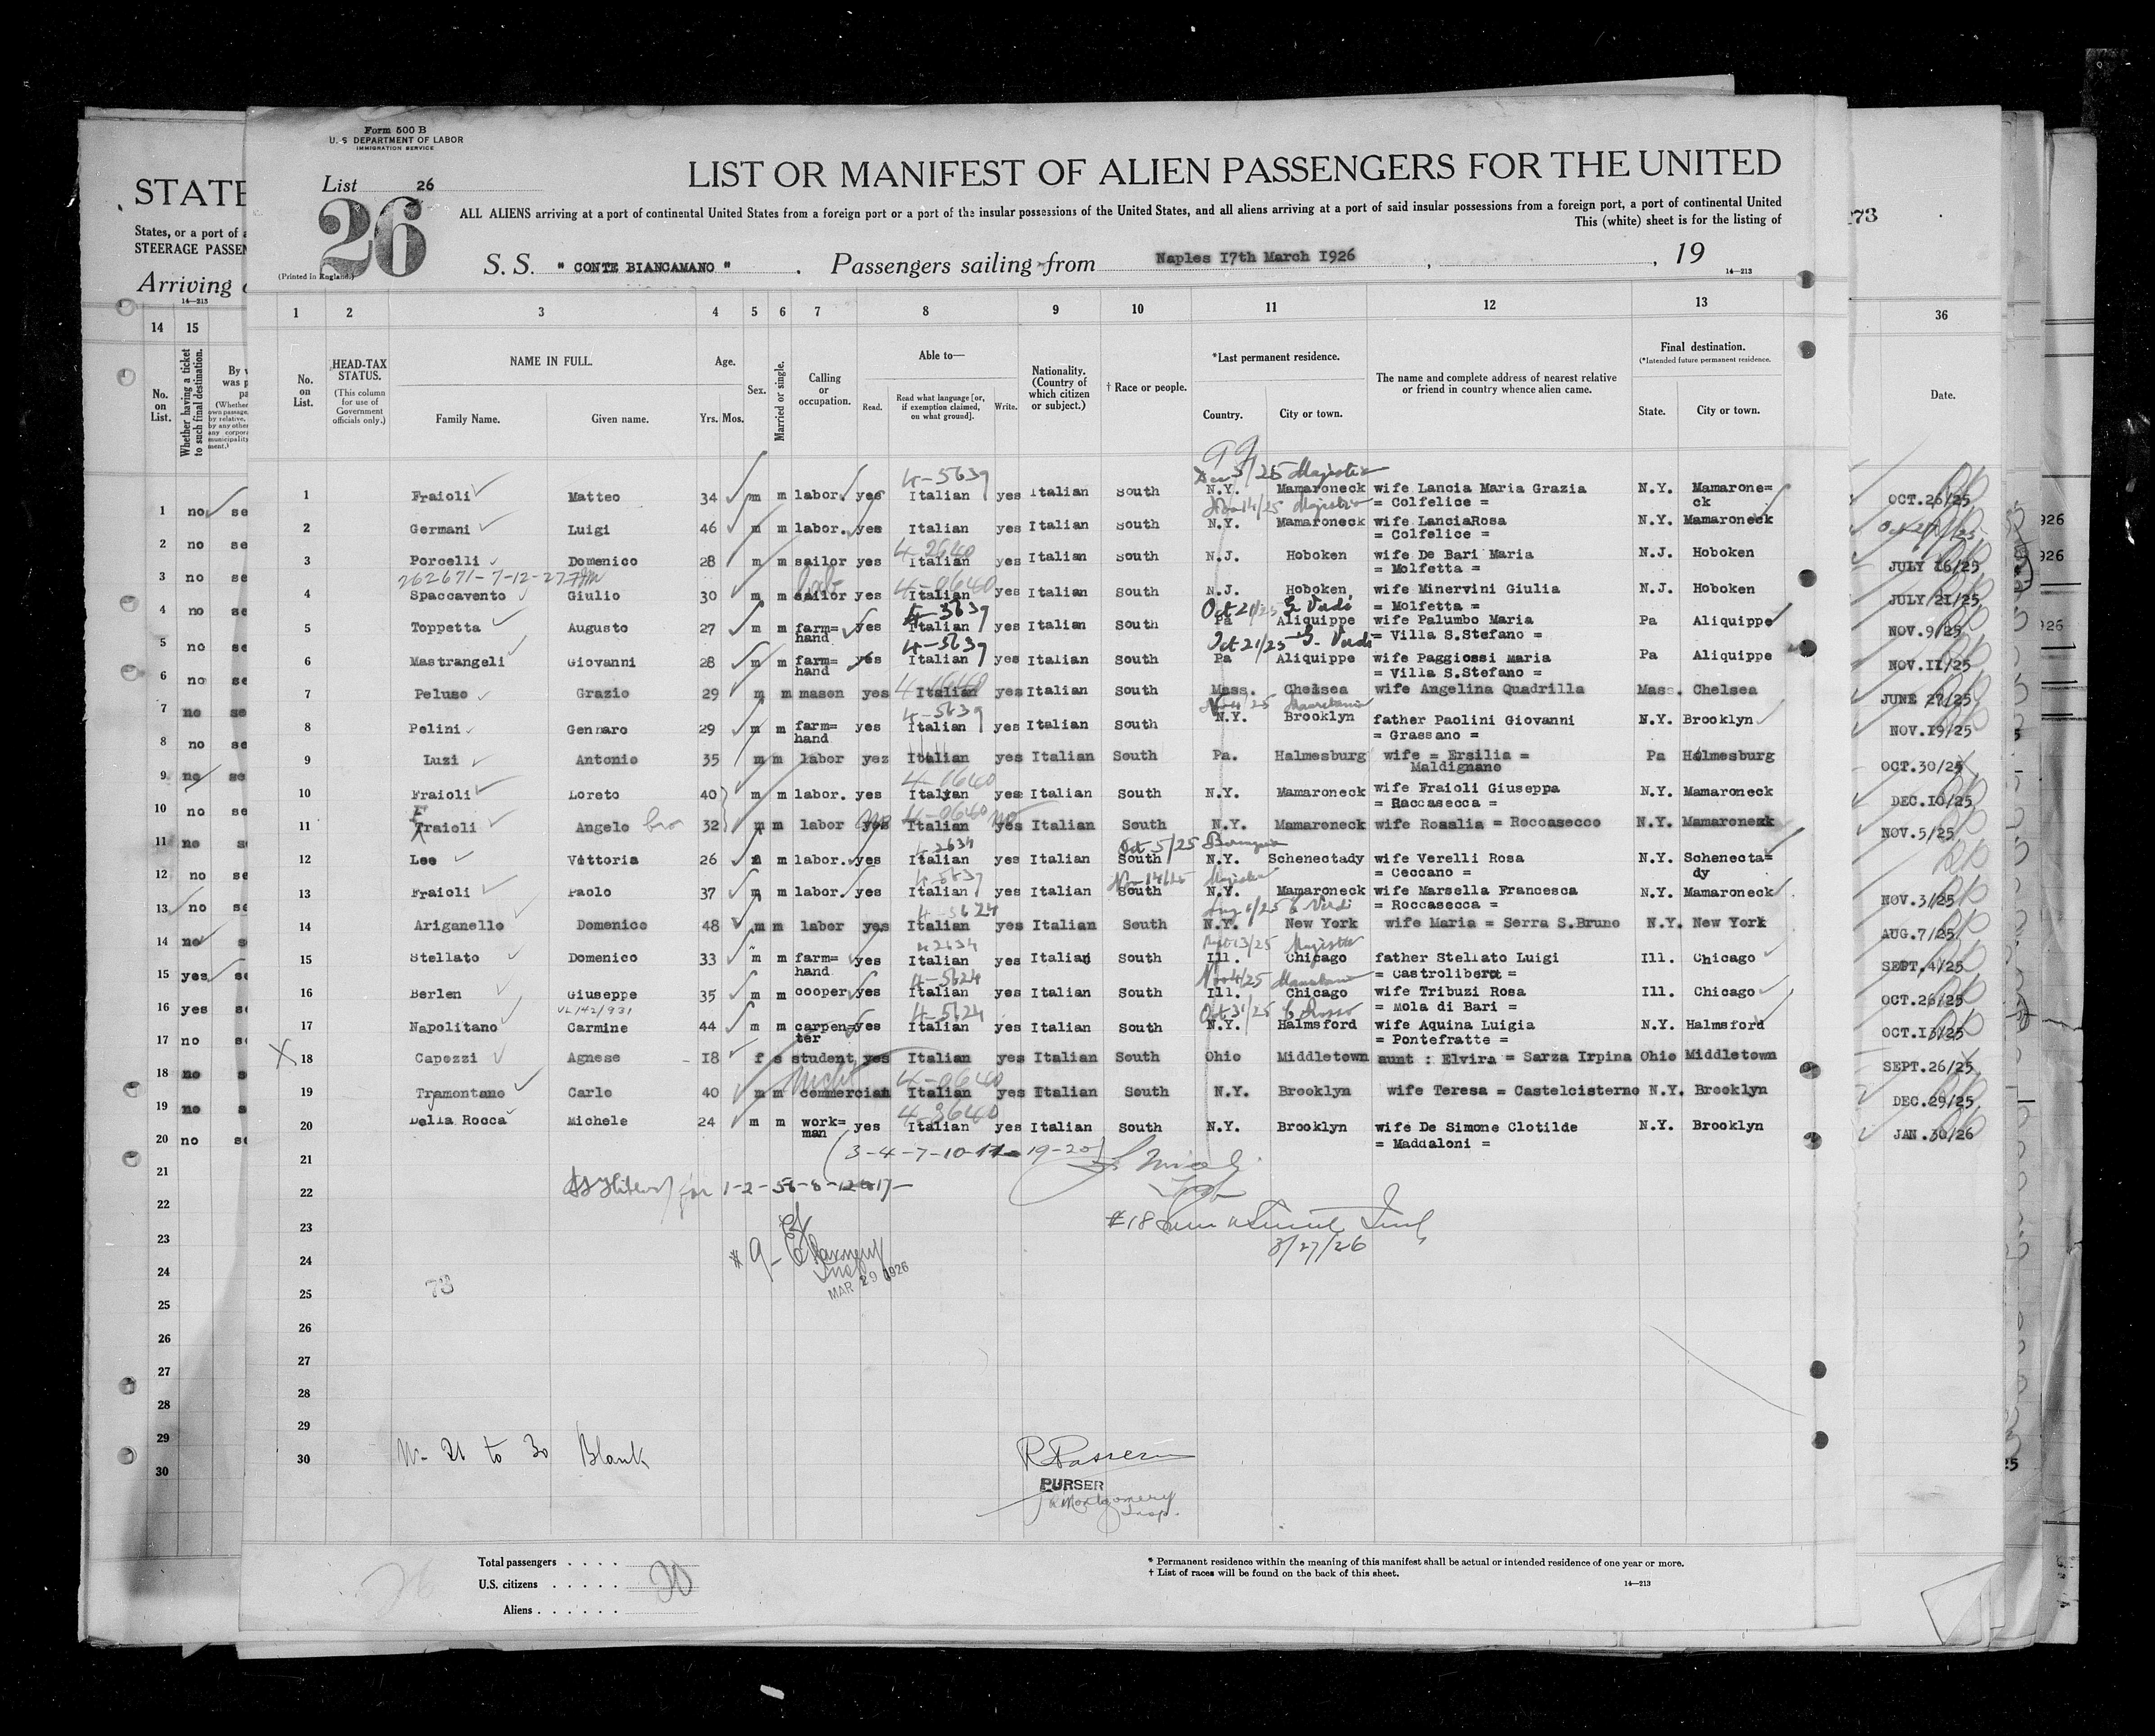 Form 500 B
U. S DEPARTMENT OF LABOR
IMMIGRATION SERVICE
List 26
26
(Printed in England.)
LIST OR MANIFEST OF ALIEN PASSENGERS FOR THE UNITED
ALL ALIENS arriving at a port of continental United States from a foreign port or a port of the insular possessions of the United States, and all aliens arriving at a port of said insular possessions from a foreign port, a port of continental United
This (white) sheet is for the listing of
S. S. " CONTE BIANCAMANO " . Passengers sailing from Naples 17th March 1926 , , 19
14—213
STATE
States, or a port of
STEERAGE PASSEN
Arriving
14—213
273
1 2 3 4 5 6 7 8 9 10 11 12 13
14 15 36
No. on List.
HEAD-TAX STATUS.
(This column for use of Government officials only.)
NAME IN FULL.
Family Name. Given name.
Age.
Yrs. Mos.
Sex.
Married or single.
Calling or occupation.
Able to—
Read. Read what language [or, if exemption claimed, on what ground]. Write.
Nationality. (Country of which citizen or subject.)
† Race or people.
*Last permanent residence.
Country. City or town.
The name and complete address of nearest relative or friend in country whence alien came.
Final destination.
(*Intended future permanent residence.
State. City or town.
No. on List.
Whether having a ticket to such final destination.
Date.
99
5/25 Majestic
4-5639
1 Fraioli Matteo 34 m m labor. yes Italian yes Italian South N.Y. Mamaroneck wife Lancia Maria Grazia N.Y. Mamarone=
= Colfelice = ck
14/25 Majestic
2 Germani Luigi 46 m m labor. yes Italian yes Italian South N.Y. Mamaroneck wife LanciaRosa N.Y. Mamaroneck
= Colfelice =
4-2640
3 Porcelli Domenico 28 m m sailor yes Italian yes Italian South N.J. Hoboken wife De Bari Maria N.J. Hoboken
= Molfetta =
262671-7-12-27
4-0640
4 Spaccavento Giulio 30 m m sailor yes Italian yes Italian South N.J. Hoboken, wife Minervini Giulia N.J. Hoboken
= Molfetta =
4-5639 Oct 21/25 G. Verdi
5 Toppetta Augusto 27 m m farm= yes Italian yes Italian South Pa Aliquippe wife Palumbo Maria Pa Aliquippe
hand = Villa S.Stefano =
4-5639 Oct 21/25 G. Verdi
6 Mastrangeli Giovanni 28 m m farm= yes Italian yes Italian South Pa Aliquippe wife Paggiossi Maria Pa Aliquippe
hand = Villa S.Stefano =
7 Peluso Grazio 29 m m mason yes Italian yes Italian South Mass. Chelsea wife Angelina Quadrilla Mass. Chelsea
4-5639 Nov 4/25 Mauretania
8 Pelini Gennaro 29 m m farm= yes Italian yes Italian South N.Y. Brooklyn father Paolini Giovanni N.Y. Brooklyn
hand = Grassano =
9 Luzi Antonio 35 m m labor yes Italian yes Italian South Pa. Halmesburg wife = Ersilia = Pa Halmesburg
Maldignano
4-0640
10 Fraioli Loreto 40 m m labor. yes Italian yes Italian South N.Y. Mamaroneck wife Fraioli Giuseppa N.Y. Mamaroneck
= Raccasecca =
no 4-0640 no
11 Fraioli Angelo bro 32 m m labor yes Italian yes Italian South N.Y. Mamaroneck wife Rosalia = Roccasecco N.Y. Mamaroneck
4-2634 Oct 5/25
12 Leo Vittorio 26 m m labor. yes Italian yes Italian South N.Y. Schenectady wife Verelli Rosa N.Y. Schenecta=
= Ceccano = dy
4-5639 Nov 14/25 Majestic
13 Fraioli Paolo 37 m m labor. yes Italian yes Italian South N.Y. Mamaroneck wife Marsella Francesca N.Y. Mamaroneck
= Roccasecca =
4-5624 Aug 6/25 G Verdi
14 Ariganello Domenico 48 m m labor yes Italian yes Italian South N.Y. New York wife Maria = Serra S.Bruno N.Y. New York
4-2634 Majestic
15 Stellato Domenico 33 m m farm= yes Italian yes Italian South Ill. Chicago father Stellato Luigi Ill. Chicago
hand = Castrolibero =
4-5624 Nov 4/25 Mauretania
16 Berlen Giuseppe 35 m m cooper yes Italian yes Italian South Ill. Chicago wife Tribuzi Rosa Ill. Chicago
= Mola di Bari =
VL 142/931 4-5624 Oct 31/25 C Rosso
17 Napolitano Carmine 44 m m carpen= yes Italian yes Italian South N.Y. Halmsford wife Aquina Luigia N.Y. Halmsford
ter = Pontefratte =
X 18 Capozzi Agnese 18 f s student yes Italian yes Italian South Ohio Middletown aunt : Elvira = Sarza Irpina Ohio Middletown
4-0640
19 Tramontano Carlo 40 m m commercian Italian yes Italian South N.Y. Brooklyn wife Teresa = Castelcisterno N.Y. Brooklyn
4-3640
20 Della Rocca Michele 24 m m work= yes Italian yes Italian South N.Y. Brooklyn wife De Simone Clotilde N.Y. Brooklyn
man = Maddaloni =
21
(3-4-7-10-11- 19-20)
22
for 1-2-56-8-12 17-
23
#18
3/27/26
24
# 9-
MAR 29 1926
25
73
26
27
28
29
30
N- 21 to 30 Blank
R Passer
PURSER
R Montgomery
Insp.
1 no se OCT.26/25
2 no se Oct 27/25
3 no se JULY 16/25
4 no se JULY 21/25
5 no se NOV.9/25
6 no se NOV.11/25
7 no se JUNE 27/25
8 no se NOV.19/25
9 no se OCT.30/25
10 no se DEC.10/25
11 no se NOV.5/25
12 no se
13 no se NOV.3/25
14 no se AUG.7/25
15 yes se SEPT.4/25
16 yes se OCT.26/25
17 no se OCT.13/25
18 no se SEPT.26/25
19 no se DEC.29/25
20 no se JAN.30/26
21
22
23
24
25
26
27
28
29
30
Total passengers . . . .
U.S. citizens . . . . . 20
Aliens . . . . . .
* Permanent residence within the meaning of this manifest shall be actual or intended residence of one year or more.
† List of races will be found on the back of this sheet.
14—213